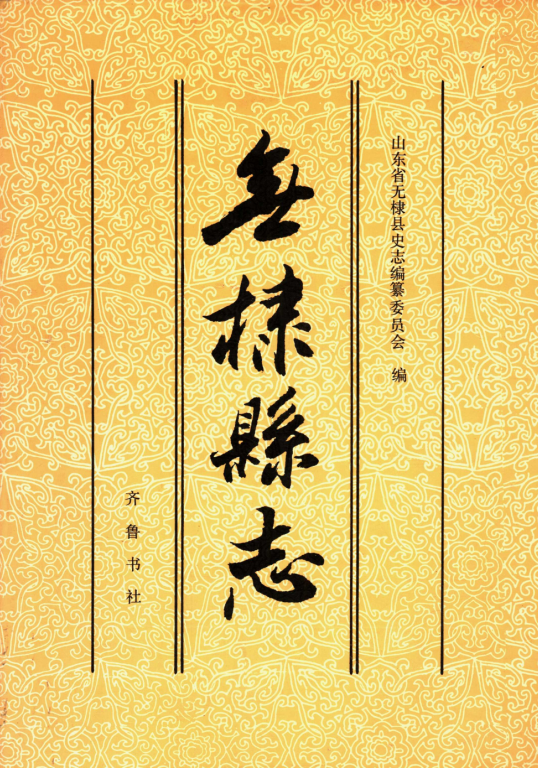 山东省无棣县史志编纂委员会 编
無棣縣志
齐鲁书社